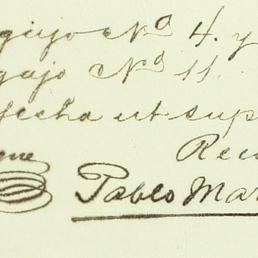 gajo Nº 4. y
gajo Nº 11.
fecha ut sup
Reci
Pablo Mar